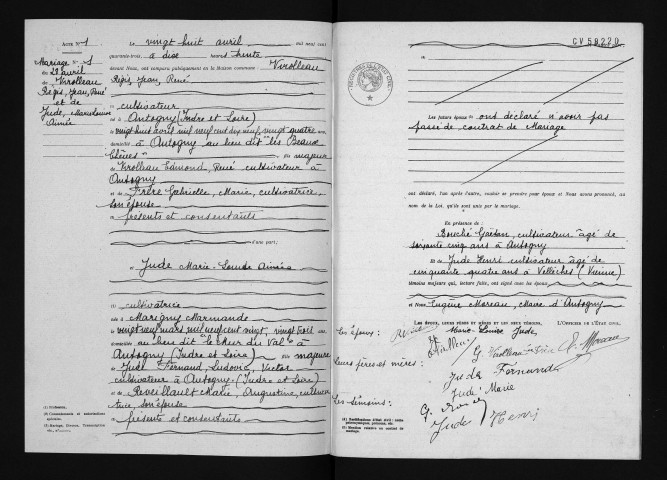 ACTE N° 1
Mariage N° 1
du 28 avril
de Virolleau
Régis, Jean, René
et de
Jude, Marie Louise
Aimée
Le vingt huit avril mil neuf cent
quarante-trois à dix heures trente
devant Nous, ont comparu publiquement en la Maison commune : Virolleau
Régis, Jean, René
(1) cultivateur
né à Antogny (Indre et Loire)
le vingt huit avril mil neuf cent dix neuf, vingt quatre ans,
domicilié à Antogny au lieu dit "les Beaux
Chênes" fils majeur
de Virolleau Edmond, René cultivateur à
Antogny
et de Frère Gabrielle, Marie, cultivatrice,
son épouse
(2) présents et consentants
d'une part;
Et Jude Marie-Louise Aimée
(1) cultivatrice
née à Marigny Marmande
le vingt neuf mars mil neuf cent vingt, vingt trois ans,
domiciliée au lieu dit "le Val" à
Antogny (Indre et Loire) fille majeure
de Jude Fernand, Ludovic, Victor
cultivateur à Antogny (Indre et Loire)
et de Reveillault Marie, Augustine, cultiva-
trice son épouse
(2) présents et consentants
(1) Profession.
(2) Consentements et autorisations
spéciales.
(3) Mariage, Divorce, Transcription
etc., d'autre.
CV58220
Les futurs époux ont déclaré n'avoir pas
passé de contrat de Mariage
ont déclaré, l'un après l'autre, vouloir se prendre pour époux et Nous avons prononcé, au
nom de la Loi, qu'ils sont unis par le mariage.
En présence de :
Bouché Gaëtan, cultivateur âgé de
soixante cinq ans à Antogny
Et de Jude Henri cultivateur âgé de
cinquante quatre ans à Vellèches (Vienne)
témoins majeurs qui, lecture faite, ont signé avec les époux,
et Nous Eugène Moreau, Maire d'Antogny
LES ÉPOUX, LEURS PÈRES ET MÈRES ET LES DEUX TÉMOINS, L'OFFICIER DE L'ÉTAT CIVIL,
Les époux : Marie-Louise Jude
Leurs pères et mères : G. Virolleau E. Moreau
Jude Fernand
Jude Marie
Les témoins :
Jude Henri